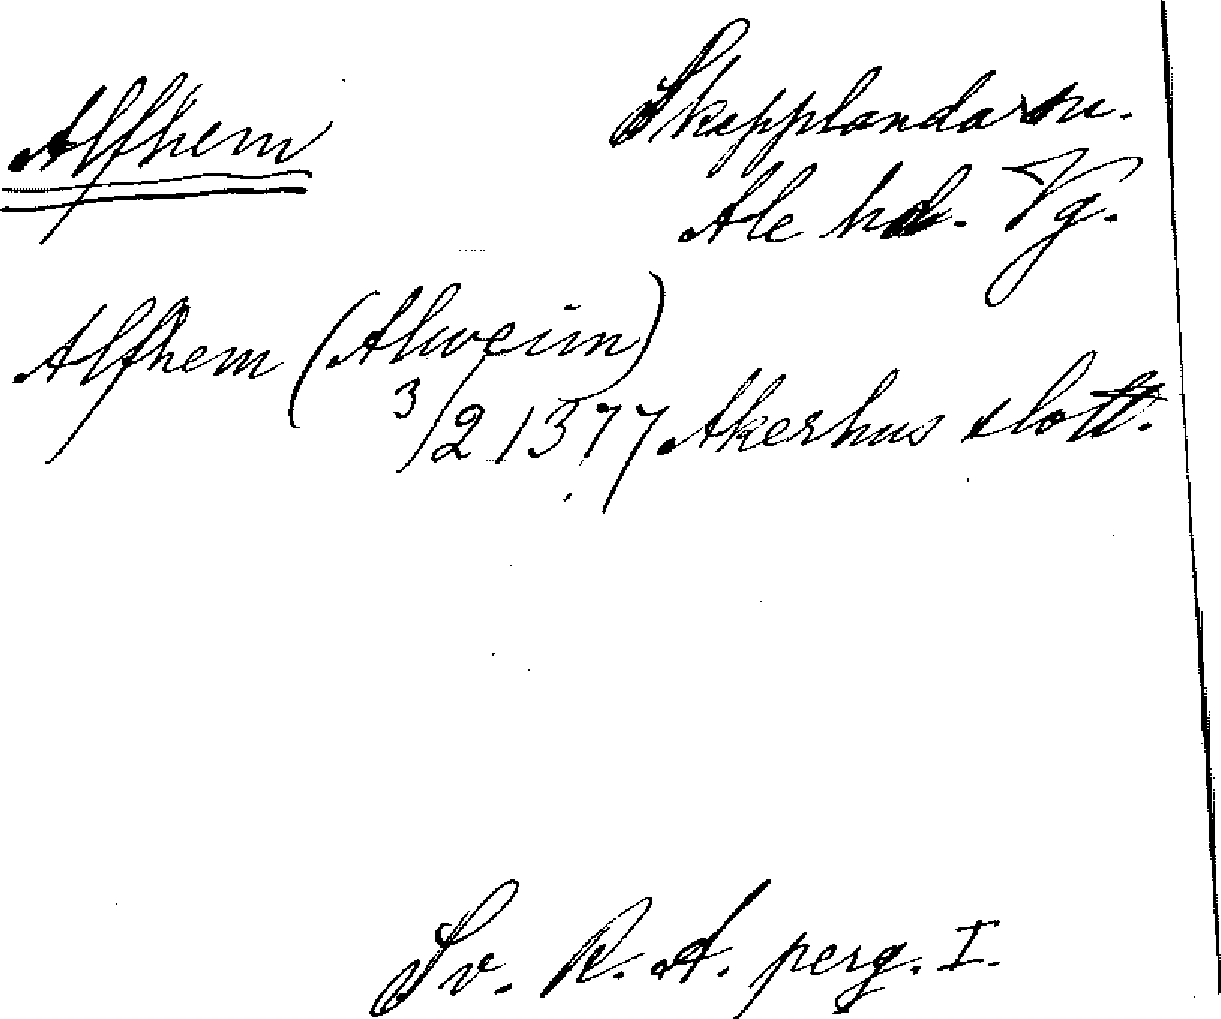 Alfhem
Skepplanda sn.
Ale hd. Vg.
Alfhem (Alweim)
3/2 1377 Akerhus slott.
Sv. R. A. perg. I.